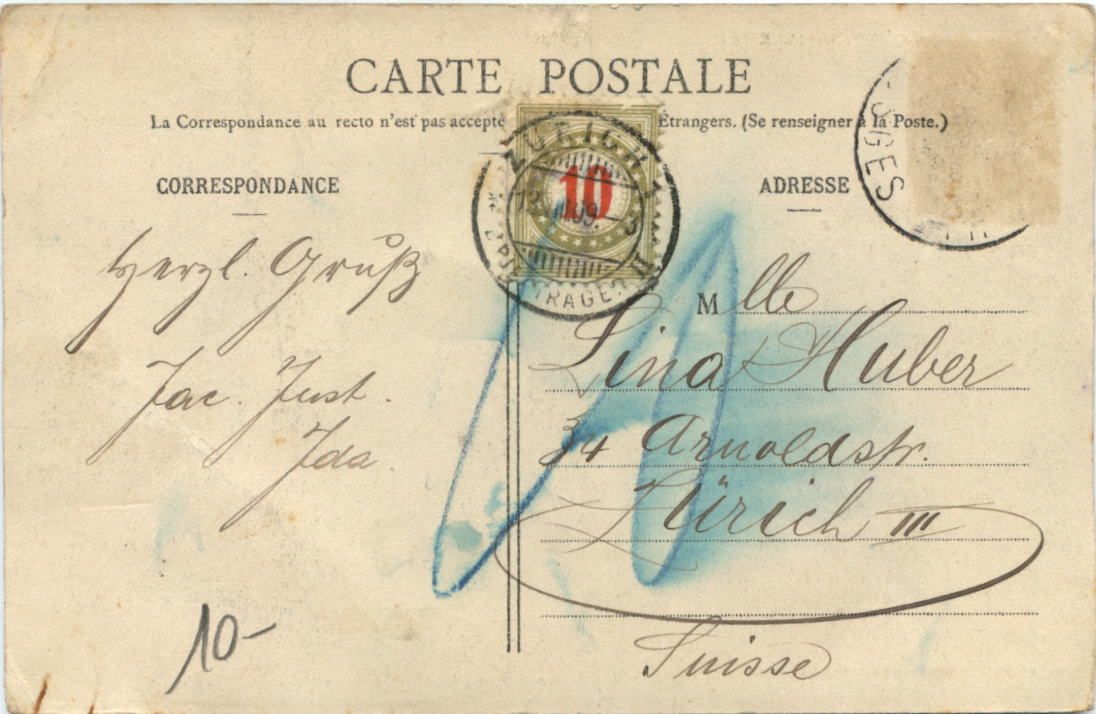 CARTE POSTALE
La Correspondance au recto n'est pas accepté Étrangers. (Se renseigner à la Poste.)
CORRESPONDANCE
ADRESSE
10
ZÜRICH
Herzl. Gruß
Jac. Just.
Ida.
Mlle
Lina Huber
34 Arnoldstr.
Zürich III
Suisse
10-